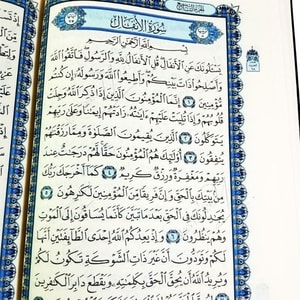 سُورَةُ الأَنفَالِ
بِسْمِ اللَّهِ الرَّحْمَٰنِ الرَّحِيمِ
يَسْـَٔلُونَكَ عَنِ الْأَنفَالِ قُلِ الْأَنفَالُ لِلَّهِ وَالرَّسُولِ فَاتَّقُوا اللَّهَ
وَأَصْلِحُوا ذَاتَ بَيْنِكُمْ وَأَطِيعُوا اللَّهَ وَرَسُولَهُ إِن كُنتُم
مُّؤْمِنِينَ ١ إِنَّمَا الْمُؤْمِنُونَ الَّذِينَ إِذَا ذُكِرَ اللَّهُ وَجِلَتْ
قُلُوبُهُمْ وَإِذَا تُلِيَتْ عَلَيْهِمْ ءَايَٰتُهُ زَادَتْهُمْ إِيمَٰنًا وَعَلَىٰ رَبِّهِمْ
يَتَوَكَّلُونَ ٢ الَّذِينَ يُقِيمُونَ الصَّلَوٰةَ وَمِمَّا رَزَقْنَٰهُمْ
يُنفِقُونَ ٣ أُولَٰئِكَ هُمُ الْمُؤْمِنُونَ حَقًّا لَّهُمْ دَرَجَٰتٌ عِندَ
رَبِّهِمْ وَمَغْفِرَةٌ وَرِزْقٌ كَرِيمٌ ٤ كَمَا أَخْرَجَكَ رَبُّكَ
مِن بَيْتِكَ بِالْحَقِّ وَإِنَّ فَرِيقًا مِّنَ الْمُؤْمِنِينَ لَكَٰرِهُونَ ٥
يُجَٰدِلُونَكَ فِي الْحَقِّ بَعْدَمَا تَبَيَّنَ كَأَنَّمَا يُسَاقُونَ إِلَى الْمَوْتِ
وَهُمْ يَنظُرُونَ ٦ وَإِذْ يَعِدُكُمُ اللَّهُ إِحْدَى الطَّائِفَتَيْنِ أَنَّهَا
لَكُمْ وَتَوَدُّونَ أَنَّ غَيْرَ ذَاتِ الشَّوْكَةِ تَكُونُ لَكُمْ
وَيُرِيدُ اللَّهُ أَن يُحِقَّ الْحَقَّ بِكَلِمَٰتِهِ وَيَقْطَعَ دَابِرَ الْكَٰفِرِينَ